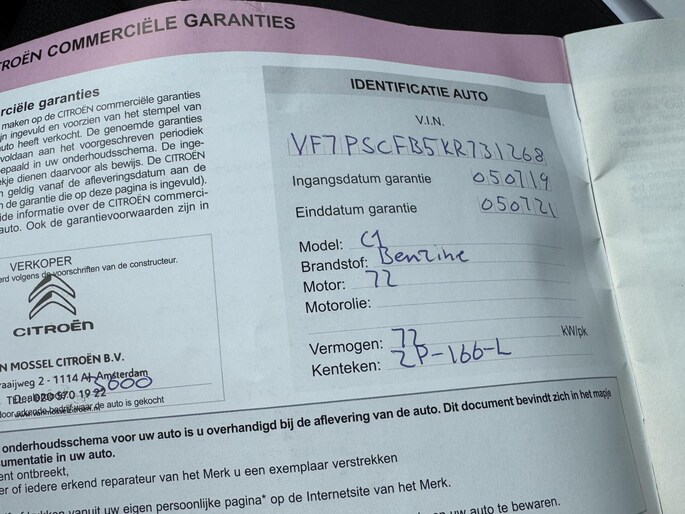 CITROËN COMMERCIËLE GARANTIES
garanties
maken op de CITROËN commerciële garanties
ingevuld en voorzien van het stempel van
auto heeft verkocht. De genoemde garanties
voldaan aan het voorgeschreven periodiek
bepaald in uw onderhoudsschema. De inge-
dienen daarvoor als bewijs. De CITROËN
geldig vanaf de afleveringsdatum aan de
de garantie die op deze pagina is ingevuld).
informatie over de CITROËN commerci-
auto. Ook de garantievoorwaarden zijn in
VERKOPER
volgens de voorschriften van de constructeur.
CITROËN
MOSSEL CITROËN B.V.
2 - 1114 AJ Amsterdam
5000
TEL. 020 570 19 22
erkende bedrijf waar de auto is gekocht
IDENTIFICATIE AUTO
V.I.N.
VF7PSCFB5KR731268
Ingangsdatum garantie 050719
Einddatum garantie 050721
Model: C1
Brandstof: Benzine
Motor: 72
Motorolie:
Vermogen: 72 kW/pk
Kenteken: ZP-166-L
onderhoudsschema voor uw auto is u overhandigd bij de aflevering van de auto. Dit document bevindt zich in het mapje
in uw auto.
ontbreekt,
of iedere erkend reparateur van het Merk u een exemplaar verstrekken
vanuit uw eigen persoonlijke pagina* op de Internetsite van het Merk.
uw auto te bewaren.